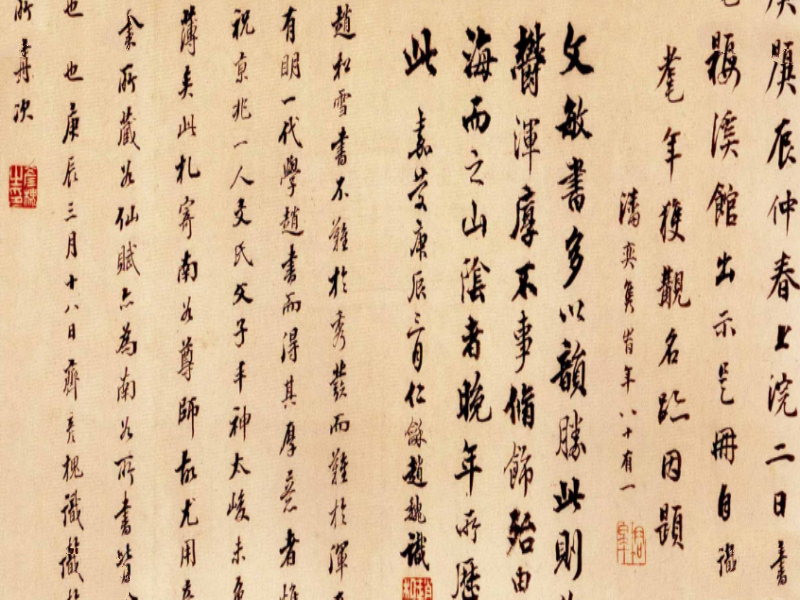 庚辰仲春上浣二日書
褉溪館出示是冊自
耄年獲觀名跡因題
潘奕雋时年八十有一
文敏書多以韻勝此則
欝渾厚不事脩飾殆由
海而之山陰者晚年所歷
此
嘉慶庚辰三月仁龢趙魏識
趙松雪書不難於秀發而難於渾
有明一代學趙書而得其厚意者惟
祝京兆一人文氏父子丰神太峻未
薄矣此札寄南谷尊師故尤用
余所藏谷仙賦亦為南谷所書皆
也庚辰三月十八日齊彥槐識
也
所
次